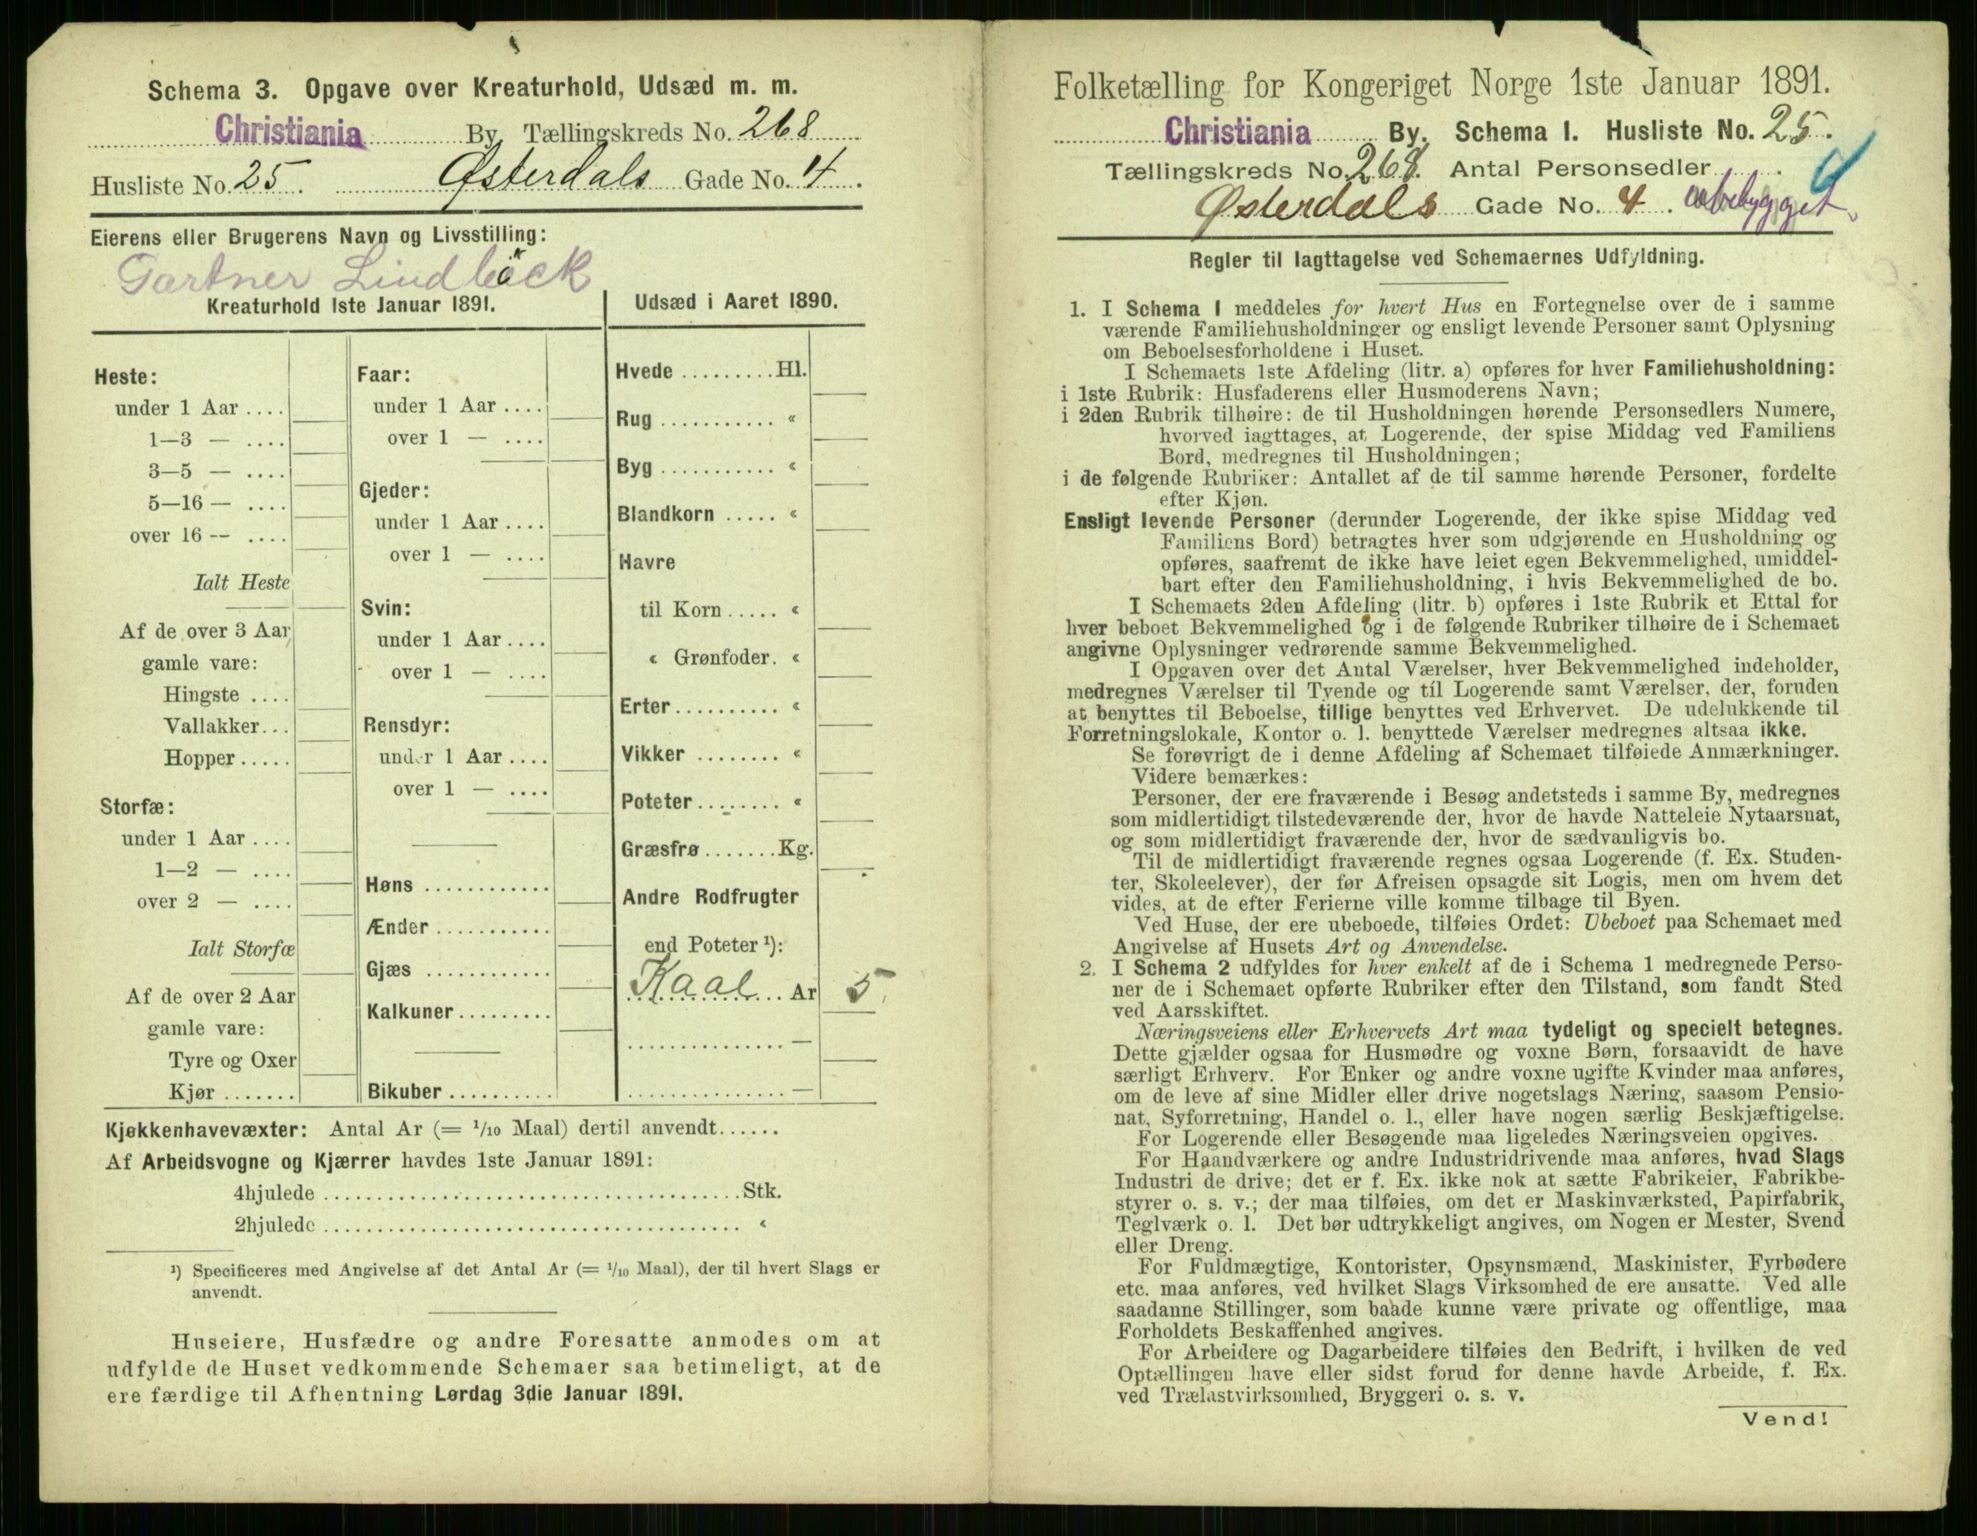 Schema 3. Opgave over Kreaturhold, Udsæd m. m.
Christiania By, Tællingskreds No. 268
Husliste No. 25. Østerdals Gade No. 4.
Eierens eller Brugerens Navn og Livsstilling:
Gartner Lindbäck
Kreaturhold 1ste Januar 1891.
Heste:
under 1 Aar ....
1—3 — ....
3—5 — ....
5—16 — ....
over 16 -- ....
Ialt Heste
Af de over 3 Aar
gamle vare:
Hingste ....
Vallakker...
Hopper.....
Storfæ:
under 1 Aar ....
1—2 — ....
over 2 — ....
Ialt Storfæ
Af de over 2 Aar
gamle vare:
Tyre og Oxer
Kjør .......
Faar:
under 1 Aar ....
over 1 — ....
Gjeder:
under 1 Aar ....
over 1 — ....
Svin:
under 1 Aar ....
over 1 — ....
Rensdyr:
under 1 Aar ....
over 1 — ....
Høns ............
Ænder ...........
Gjæs ............
Kalkuner.........
Bikuber ..........
Udsæd i Aaret 1890.
Hvede .........Hl.
Rug ........... «
Byg ........... «
Blandkorn ..... «
Havre
til Korn ..... «
« Grønfoder. «
Erter.......... «
Vikker ........ «
Poteter........ «
Græsfrø.......Kg.
Andre Rodfrugter
end Poteter ¹):
Kaal ... Ar 5.
............... —
............... —
Kjøkkenhavevæxter: Antal Ar (= 1/10 Maal) dertil anvendt......
Af Arbeidsvogne og Kjærrer havdes 1ste Januar 1891:
4hjulede ......................................Stk.
2hjulede ...................................... «
¹) Specificeres med Angivelse af det Antal Ar (= 1/10 Maal), der til hvert Slags er
anvendt.
Huseiere, Husfædre og andre Foresatte anmodes om at
udfylde de Huset vedkommende Schemaer saa betimeligt, at de
ere færdige til Afhentning Lørdag 3die Januar 1891.
Folketælling for Kongeriget Norge 1ste Januar 1891.
Christiania By. Schema 1. Husliste No. 25.
Tællingskreds No. 268. Antal Personsedler
Østerdals Gade No. 4. ubebygget
Regler til Iagttagelse ved Schemaernes Udfyldning.
1. I Schema 1 meddeles for hvert Hus en Fortegnelse over de i samme
værende Familiehusholdninger og ensligt levende Personer samt Oplysning
om Beboelsesforholdene i Huset.
I Schemaets 1ste Afdeling (litr. a) opføres for hver Familiehusholdning:
i 1ste Rubrik: Husfaderens eller Husmoderens Navn;
i 2den Rubrik tilhøire: de til Husholdningen hørende Personsedlers Numere,
hvorved iagttages, at Logerende, der spise Middag ved Familiens
Bord, medregnes til Husholdningen;
i de følgende Rubriker: Antallet af de til samme hørende Personer, fordelte
efter Kjøn.
Ensligt levende Personer (derunder Logerende, der ikke spise Middag ved
Familiens Bord) betragtes hver som udgjørende en Husholdning og
opføres, saafremt de ikke have leiet egen Bekvemmelighed, umiddel-
bart efter den Familiehusholdning, i hvis Bekvemmelighed de bo.
I Schemaets 2den Afdeling (litr. b) opføres i 1ste Rubrik et Ettal for
hver beboet Bekvemmelighed og i de følgende Rubriker tilhøire de i Schemaet
angivne Oplysninger vedrørende samme Bekvemmelighed.
I Opgaven over det Antal Værelser, hver Bekvemmelighed indeholder,
medregnes Værelser til Tyende og til Logerende samt Værelser, der, foruden
at benyttes til Beboelse, tillige benyttes ved Erhvervet. De udelukkende til
Forretningslokale, Kontor o. l. benyttede Værelser medregnes altsaa ikke.
Se forøvrigt de i denne Afdeling af Schemaet tilføiede Anmærkninger.
Videre bemærkes:
Personer, der ere fraværende i Besøg andetsteds i samme By, medregnes
som midlertidigt tilstedeværende der, hvor de havde Natteleie Nytaarsnat,
og som midlertidigt fraværende der, hvor de sædvanligvis bo.
Til de midlertidigt fraværende regnes ogsaa Logerende (f. Ex. Studen-
ter, Skoleelever), der før Afreisen opsagde sit Logis, men om hvem det
vides, at de efter Ferierne ville komme tilbage til Byen.
Ved Huse, der ere ubeboede, tilføies Ordet: Ubeboet paa Schemaet med
Angivelse af Husets Art og Anvendelse.
2. I Schema 2 udfyldes for hver enkelt af de i Schema 1 medregnede Perso-
ner de i Schemaet opførte Rubriker efter den Tilstand, som fandt Sted
ved Aarsskiftet.
Næringsveiens eller Erhvervets Art maa tydeligt og specielt betegnes.
Dette gjælder ogsaa for Husmødre og voxne Børn, forsaavidt de have
særligt Erhverv. For Enker og andre voxne ugifte Kvinder maa anføres,
om de leve af sine Midler eller drive nogetslags Næring, saasom Pensio-
nat, Syforretning, Handel o. l., eller have nogen særlig Beskjæftigelse.
For Logerende eller Besøgende maa ligeledes Næringsveien opgives.
For Haandværkere og andre Industridrivende maa anføres, hvad Slags
Industri de drive; det er f. Ex. ikke nok at sætte Fabrikeier, Fabrikbe-
styrer o. s. v.; der maa tilføies, om det er Maskinværksted, Papirfabrik,
Teglværk o. l. Det bør udtrykkeligt angives, om Nogen er Mester, Svend
eller Dreng.
For Fuldmægtige, Kontorister, Opsynsmænd, Maskinister, Fyrbødere
etc. maa anføres, ved hvilket Slags Virksomhed de ere ansatte. Ved alle
saadanne Stillinger, som baade kunne være private og offentlige, maa
Forholdets Beskaffenhed angives.
For Arbeidere og Dagarbeidere tilføies den Bedrift, i hvilken de ved
Optællingen have eller sidst forud for denne havde Arbeide, f. Ex.
ved Trælastvirksomhed, Bryggeri o. s. v.
Vend!